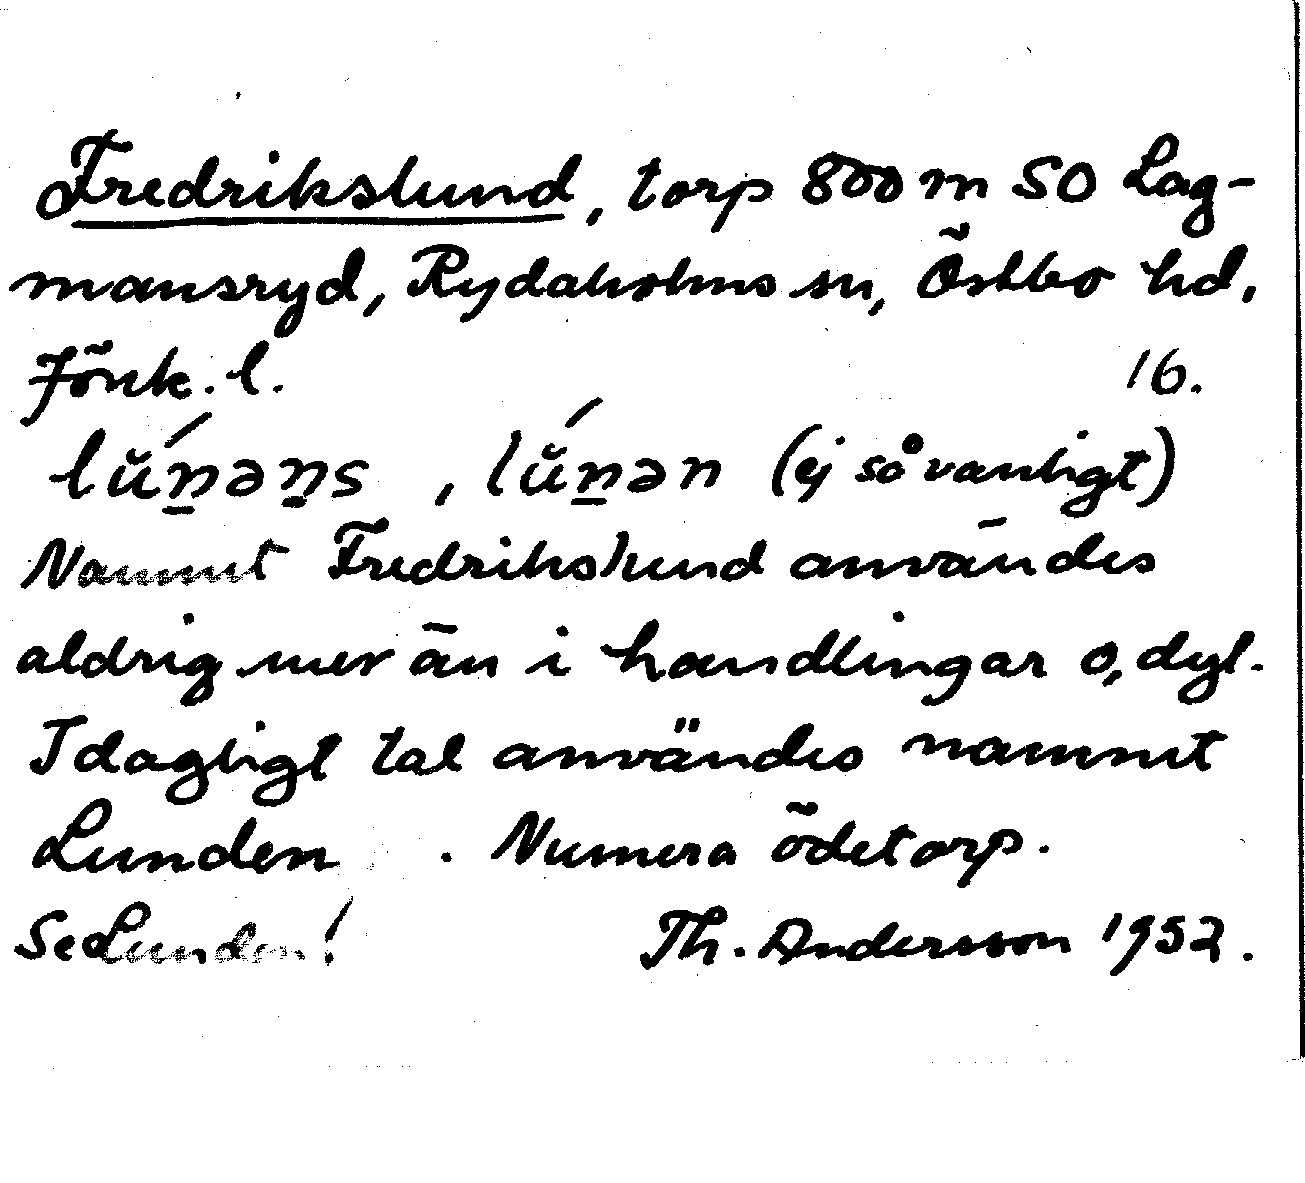 Fredrikslund, torp 800 m SO Lag-
mansryd, Rydaholms sn, Östbo hd,
Jönk. l. 16.
lŭ́n̲ən̲s, lŭ́n̲ən (ej så vanligt)
Namnet Fredrikslund användes
aldrig mer än i handlingar o, dyl.
I dagligt tal användes namnet
Lunden. Numera ödetorp.
Se Lunden! Th. Andersson 1952.